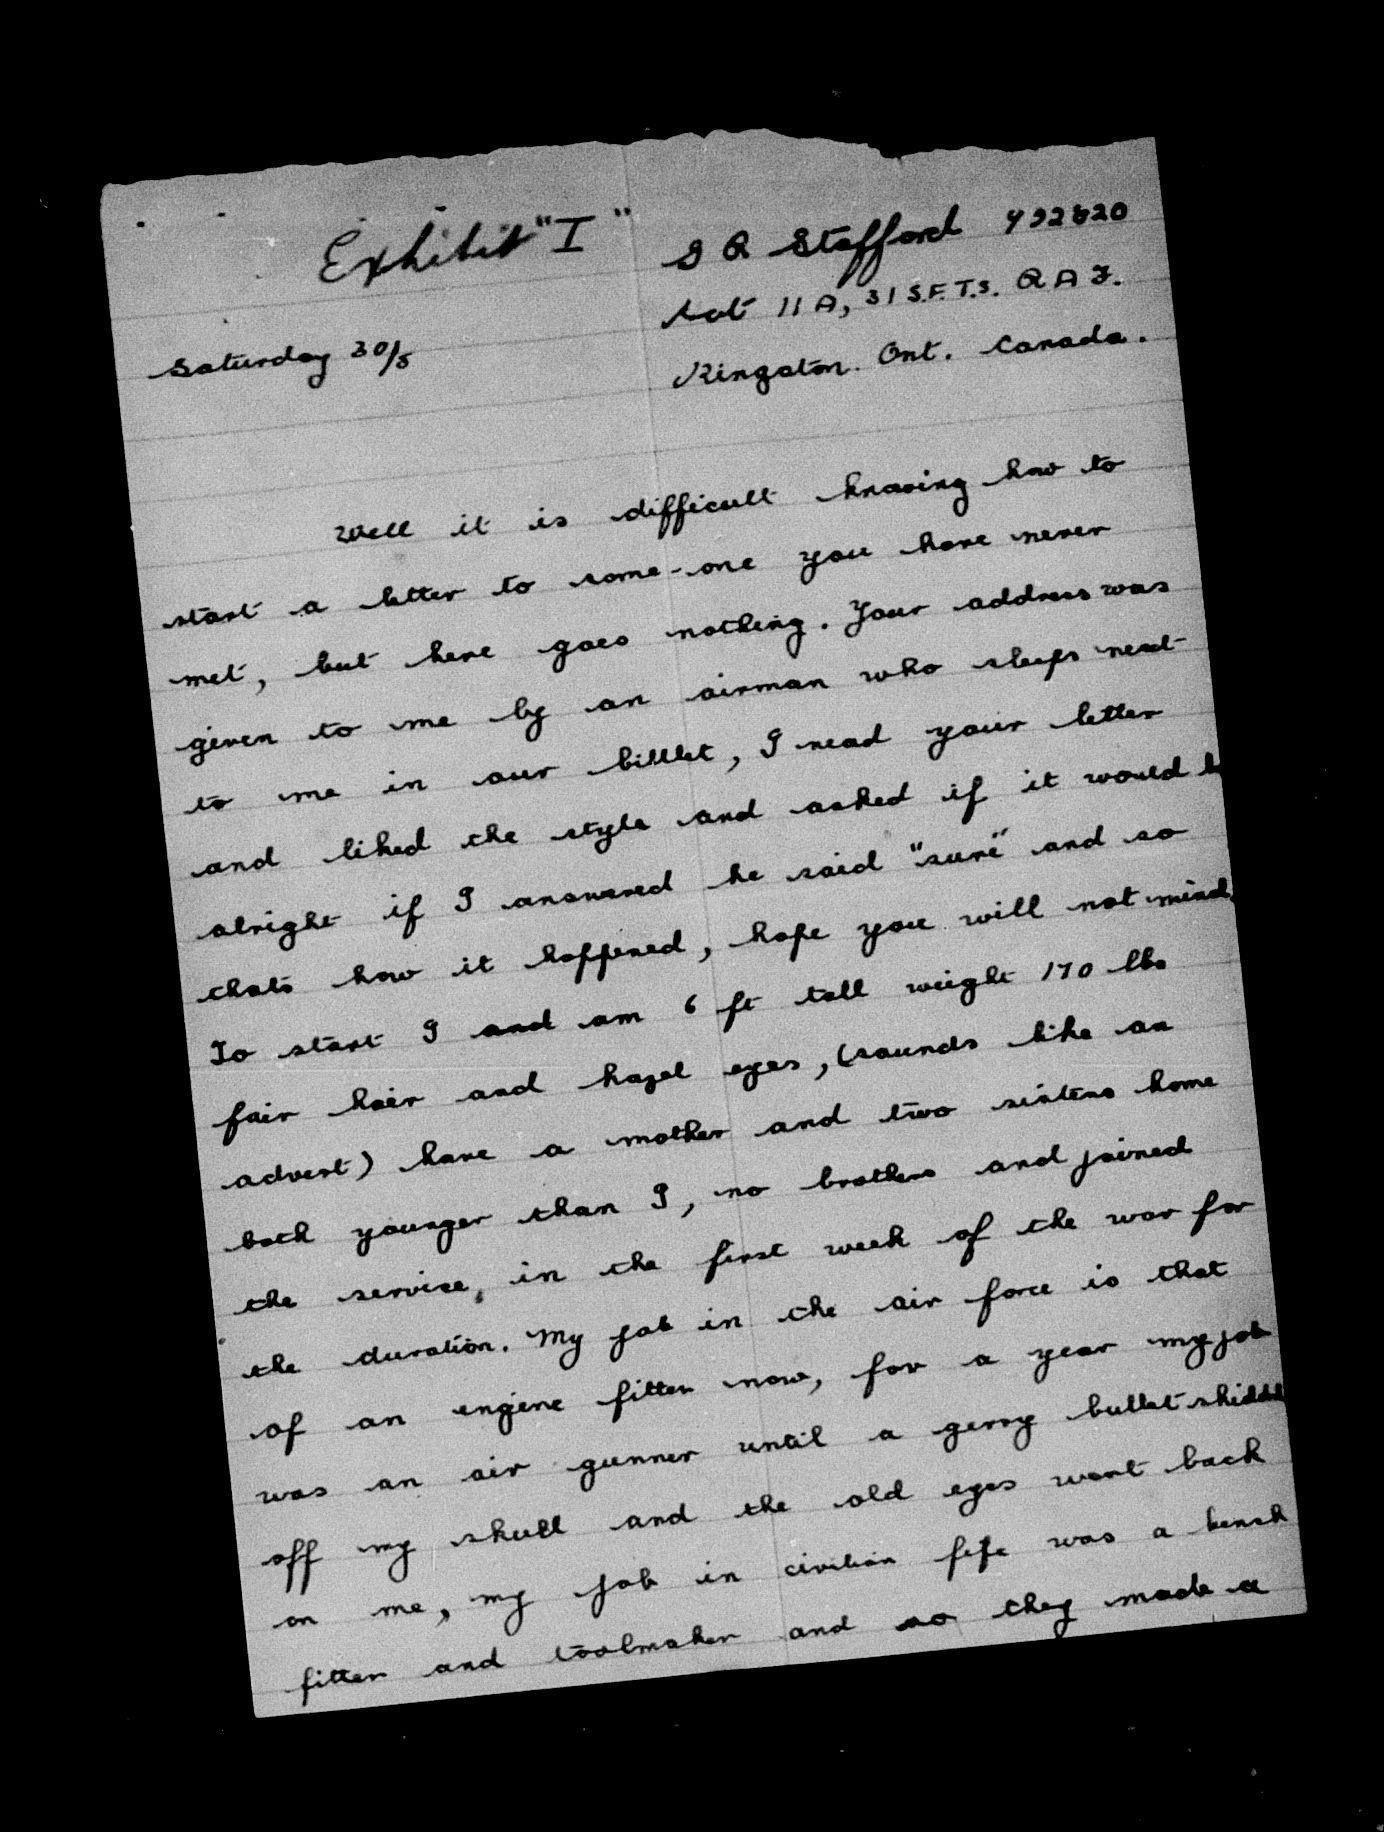 Exhibit "I"
G R Stafford 992620
Hut 11A, 31 S.F.T.S. R A F.
Saturday 30/5
Kingston. Ont. Canada.
Well it is difficult knowing how to
start a letter to some-one you have never
met, but here goes nothing. Your address was
given to me by an airman who sleeps next
to me in our billet, I read your letter
and liked the style and asked if it would b
alright if I answered he said "sure" and so
thats how it happened, hope you will not mind.
To start I and am 6 ft tall weight 170 lbs
fair hair and hazel eyes, (sounds like an
advert) have a mother and two sisters home
both younger than I, no brothers and joined
the service, in the first week of the war for
the duration. My job in the air force is that
of an engine fitter now, for a year my job
was an air gunner until a gerry bullet skidded
off my skull and the old eyes went back
on me, my job in civilian life was a bench
fitter and toolmaker and so they made a